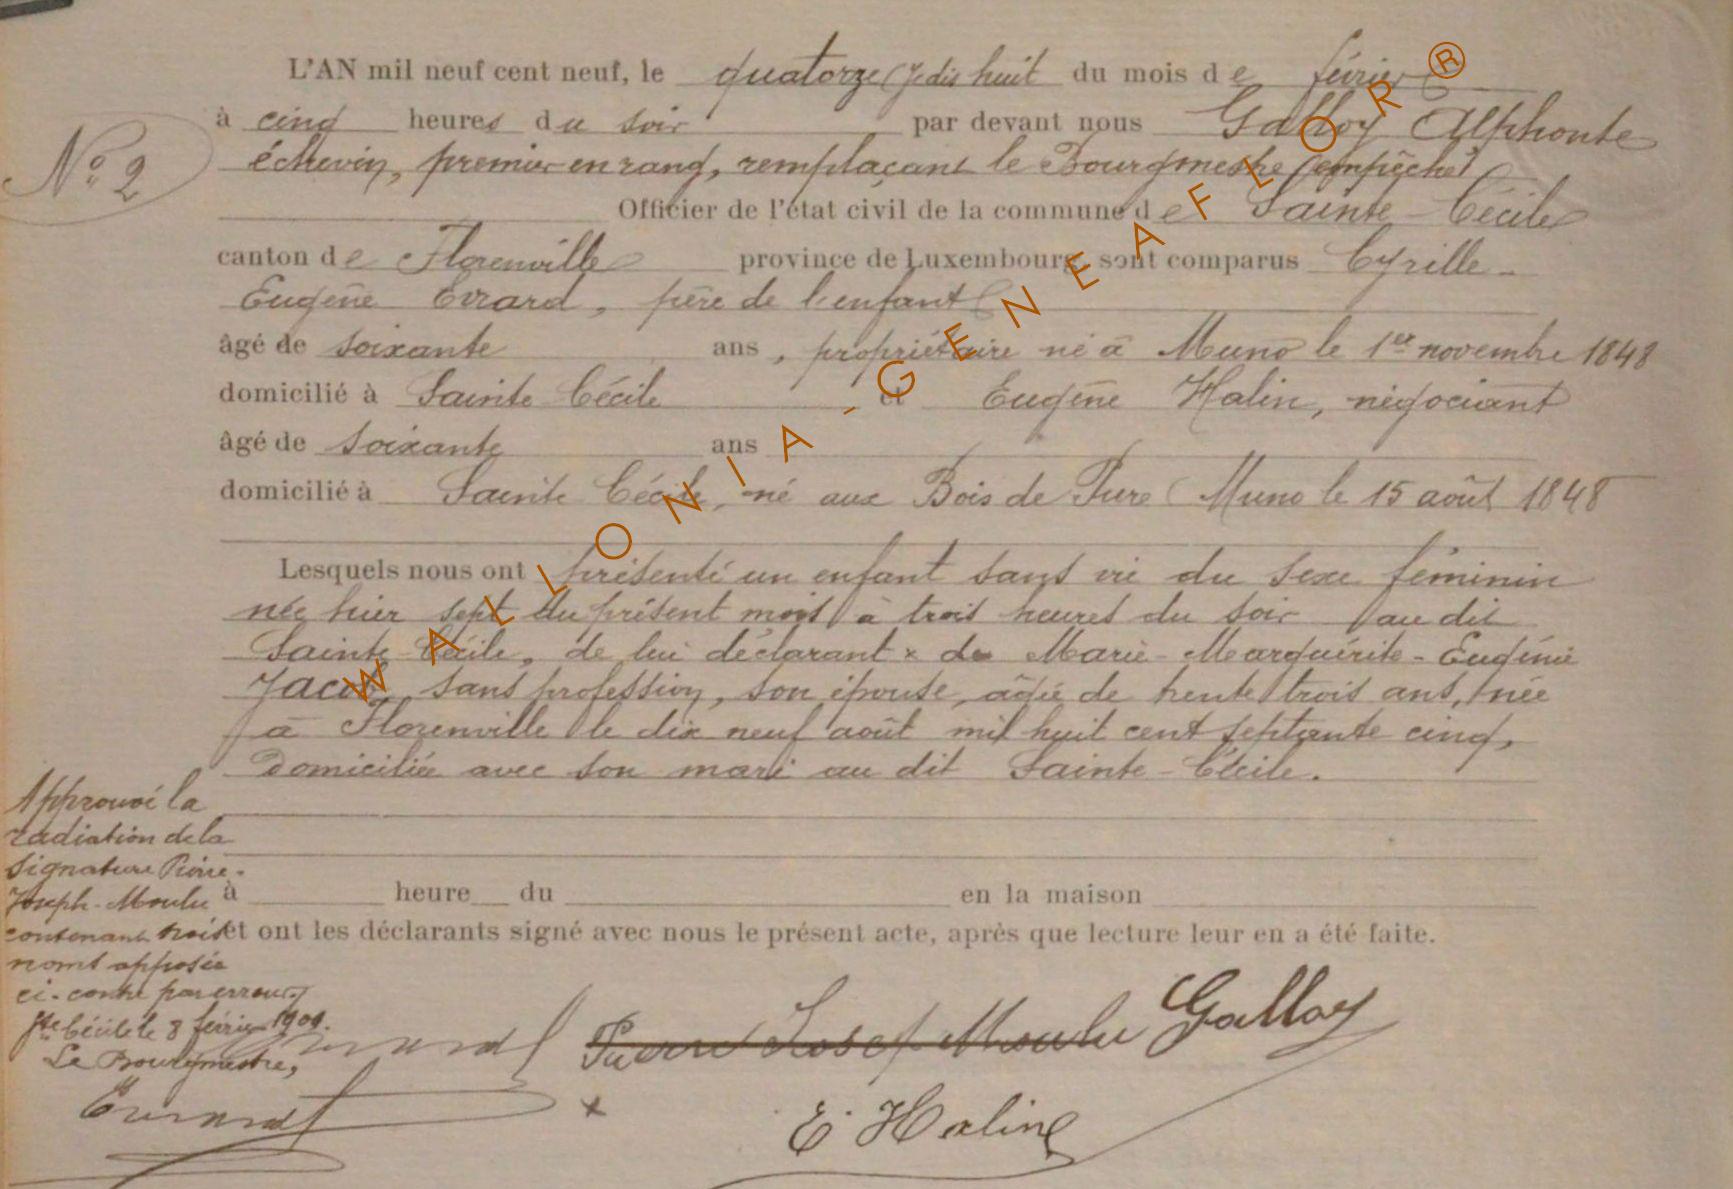 L'AN mil neuf cent neuf, le quatorze (dix huit du mois de février
à cinq heures du soir par devant nous Galloy Alphonse
échevin, premier en rang, remplaçant le Bourgmestre empêché
N° 2
Officier de l'état civil de la commune de Sainte-Cécile
canton de Florenville province de Luxembourg, sont comparus Cyrille-
Eugène Evrard, père de l'enfant
âgé de soixante ans, propriétaire né à Muno le 1er novembre 1848
domicilié à Sainte Cécile et Eugène Halin, négociant
âgé de soixante ans
domicilié à Sainte Cécile, né aux Bois de Pure (Muno le 15 août 1848
Lesquels nous ont présenté un enfant sans vie du sexe féminin
née hier sept du présent mois à trois heures du soir au dit
Sainte Cécile, de lui déclarant & de Marie-Marguérite-Eugénie
Jacob, sans profession, son épouse, âgée de trente trois ans, née
à Florenville le dix neuf août mil huit cent septante cinq,
Domiciliée avec son mari au dit Sainte-Cécile.
à heure du en la maison
et ont les déclarants signé avec nous le présent acte, après que lecture leur en a été faite.
Approuvé la
radiation de la
signature Pierre-
Joseph-Moulu
contenant trois
noms apposée
ci-contre par erreur.
Ste Cécile le 8 février 1909.
Le Bourgmestre,
Evrard
Evrard Pierre Josef Moulu Galloy
x E. Halin
WALLONIA-GENEAFLOR®